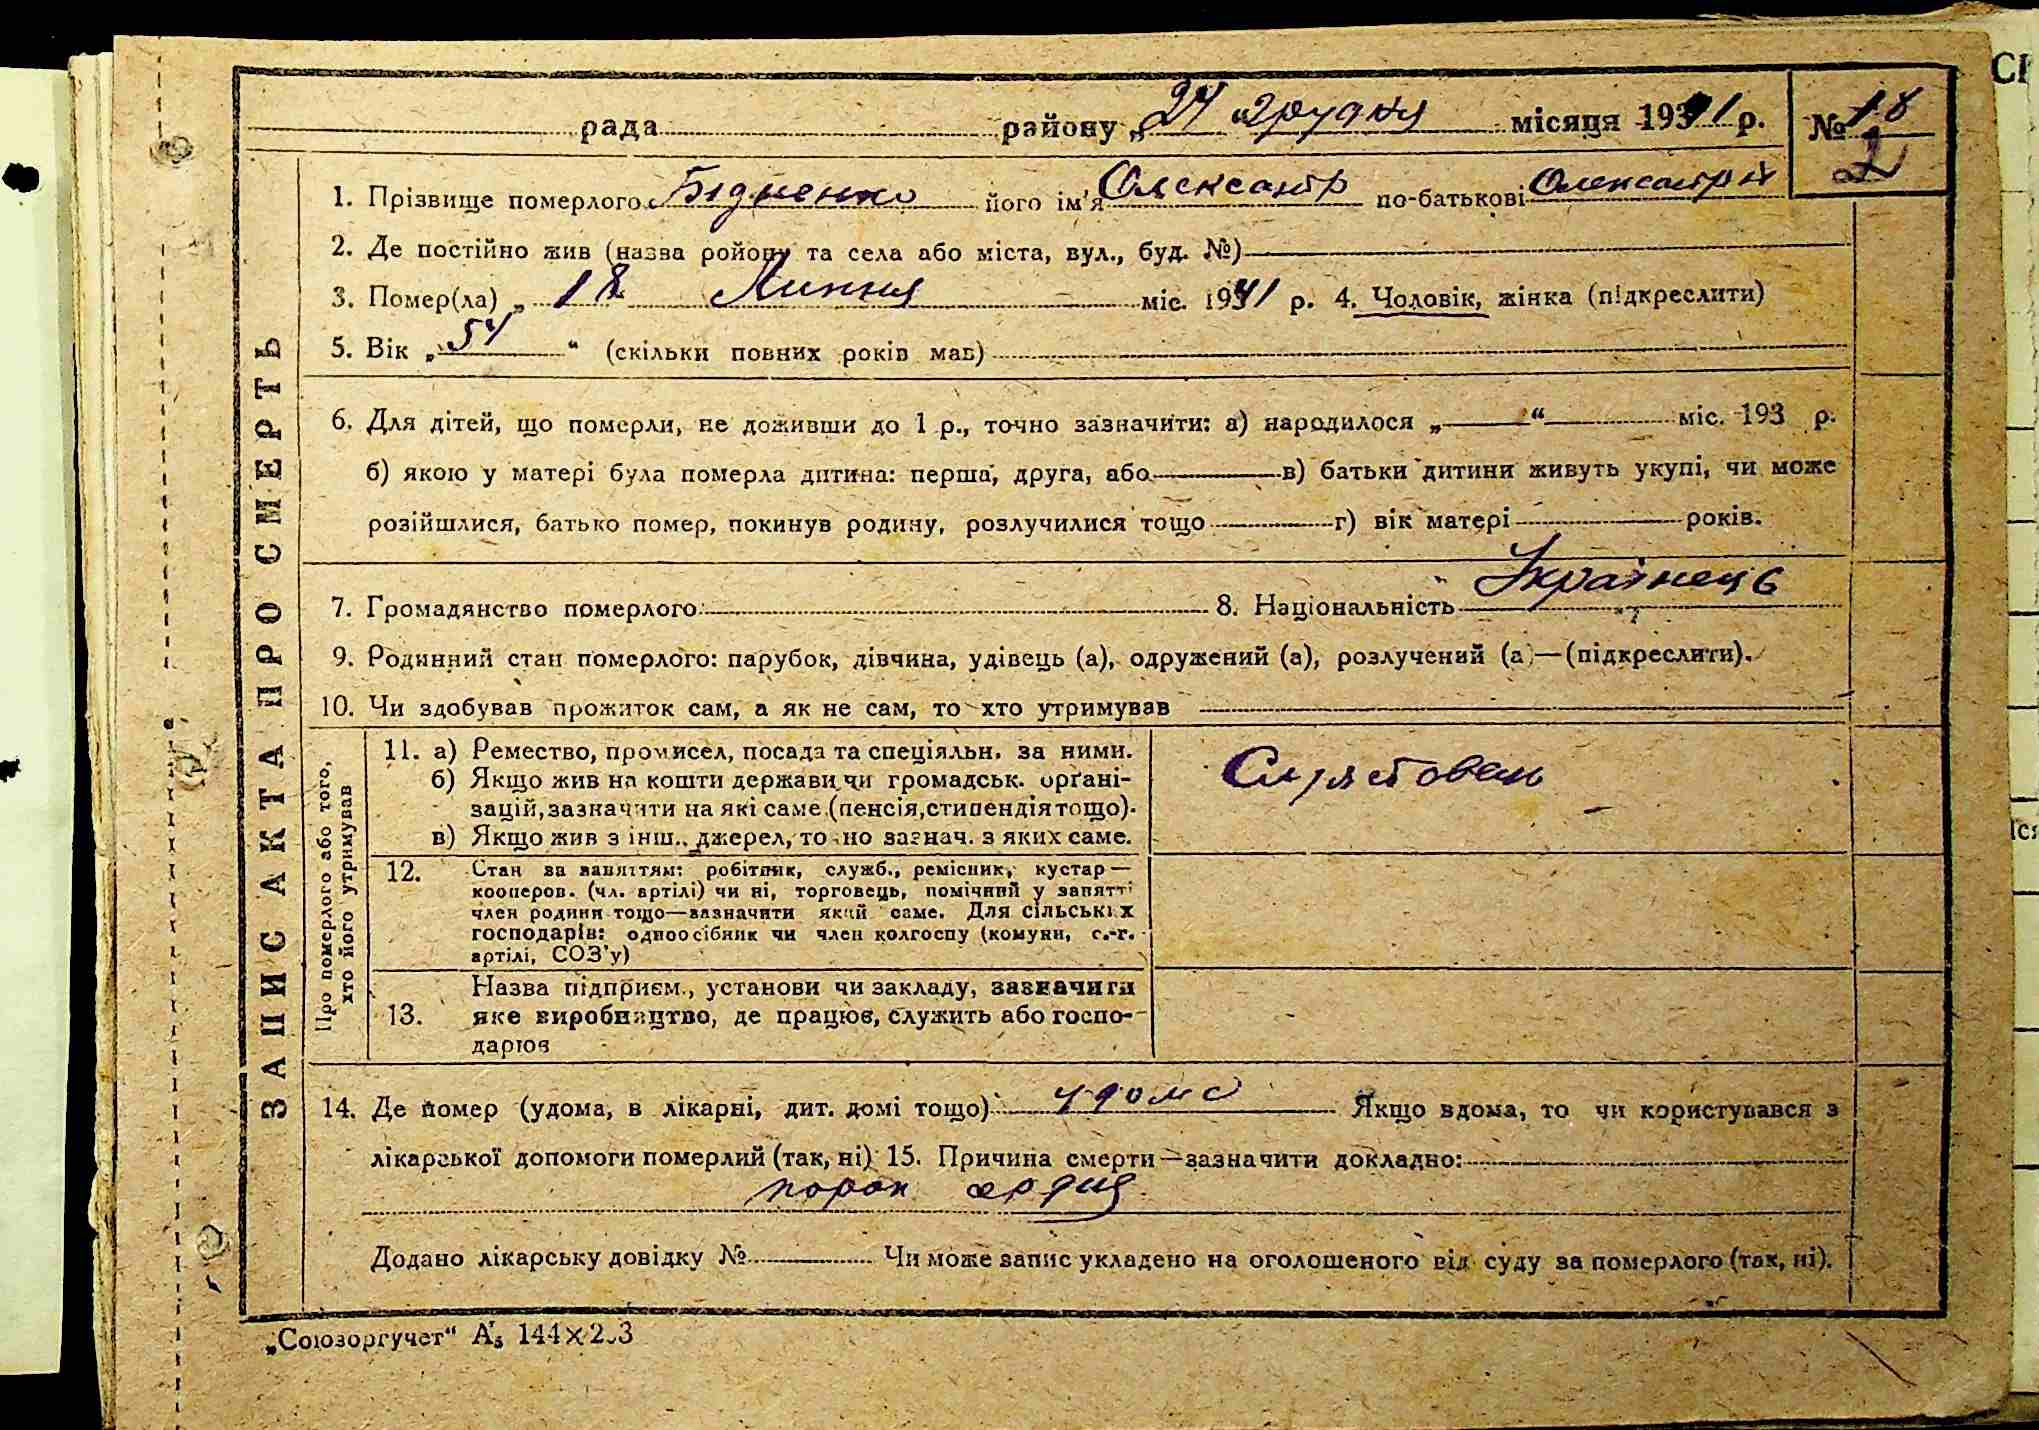 рада району „24 “ грудня місяця 1941 р. № 18
2
1. Прізвище померлого Бідненко його ім'я Олександр по-батькові Олександр
2. Де постійно жив (назва ройону та села або міста, вул., буд. №)
3. Помер(ла) „ 18 Липня міс. 1941 р. 4. Чоловік, жінка (підкреслити)
5. Вік „ 54 “ (скільки повних років мав)
6. Для дітей, що померли, не доживши до 1 р., точно зазначити: а) народилося „ “ міс. 193 р.
б) якою у матері була померла дитина: перша, друга, або в) батьки дитини живуть укупі, чи може
розійшлися, батько помер, покинув родину, розлучилися тощо г) вік матері років.
7. Громадянство померлого 8. Національність Українець
9. Родинний стан померлого: парубок, дівчина, удівець (а), одружений (а), розлучений (а)—(підкреслити).
10. Чи здобував прожиток сам, а як не сам, то хто утримував
ЗАПИС АКТА ПРО СМЕРТЬ
Про померлого або того,
хто його утримував
11. а) Ремество, промисел, посада та спеціяльн. за ними.
б) Якщо жив на кошти держави чи громадськ. орґані-
зацій, зазначити на які саме (пенсія, стипендія тощо).
в) Якщо жив з інш. джерел, то но зазнач. з яких саме.
12. Стан за заняттям: робітник, служб., ремісник, кустар—
кооперов. (чл. артілі) чи ні, торговець, помічний у занятті
член родини тощо—зазначити який саме. Для сільських
господарів: одноосібник чи член колгоспу (комуни, с.-г.
артілі, СОЗ'у)
13. Назва підприєм., установи чи закладу, зазначити
яке виробництво, де працює, служить або госпо-
дарює
14. Де помер (удома, в лікарні, дит. домі тощо) удома Якщо вдома, то чи користувався з
лікарської допомоги померлий (так, ні) 15. Причина смерти—зазначити докладно:
порок сердця
Додано лікарську довідку № Чи може запис укладено на оголошеного від суду за померлого (так, ні).
„Союзоргучет“ А5 144×203